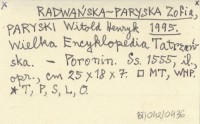 RADWAŃSKA-PARYSKA Zofia,
PARYSKI Witold Henryk 1995.
Wielka Encyklopedia Tatrzań-
ska. – Poronin. Ss. 1555, il.,
opr., cm 25 x 18 x 7. □ MT, WHP.
* T, P, S, L, O.